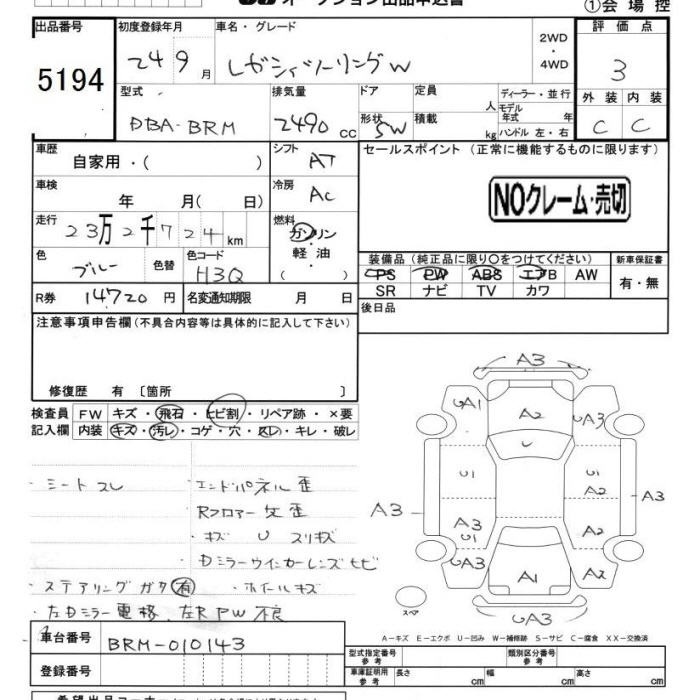 オークション出品申込書
①会場控
出品番号 初度登録年月 車名・グレード 評価点
5194 24 9月 レガシィツーリングW 2WD・4WD 3
型式 排気量 ドア 定員 ディーラー・並行 外装 内装
DBA-BRM 2490CC 形状 SW 積載 人 kg モデル年式 年式 ハンドル 左・右 C C
車歴 自家用・( ) シフト AT セールスポイント (正常に機能するものに限ります)
車検 年 月( 日) 冷房 AC NOクレーム・売切
走行 23万2千724km 燃料 ガソリン・軽油・( )
色 ブルー 色替 色コード H3Q
装備品(純正品に限り○をつけてください) 新車保証書
PS PW ABS エアB AW 有・無
SR ナビ TV カワ
R券 14720円 名変通知期限 月 日 後日品
注意事項申告欄(不具合内容等は具体的に記入して下さい)
修復歴 有 〔箇所 〕
検査員 FW キズ・飛石・ヒビ割・リペア跡・×要
記入欄 内装 キズ・汚レ・コゲ・穴・スレ・キレ・破レ
シートスレ エンドパネル歪
Rフロアー 歪
キズ U スリキズ
Dミラーウインカーレンズヒビ
ステアリングガタ有 ホイールキズ
左Dミラー電格、左R PW 不良
A3
UA1 A2 UA3
U
U1 U1
A2
A3 A3 A3
U1 A2
UA3 A1 A2
スペア UA3
A-キズ E-エクボ U-凹み W-補修跡 S-サビ C-腐食 XX-交換済
車台番号 BRM-010143 型式指定番号 参考 類別区分番号 参考
登録番号 車庫証明用 参考 長さ cm 幅 cm 高さ cm